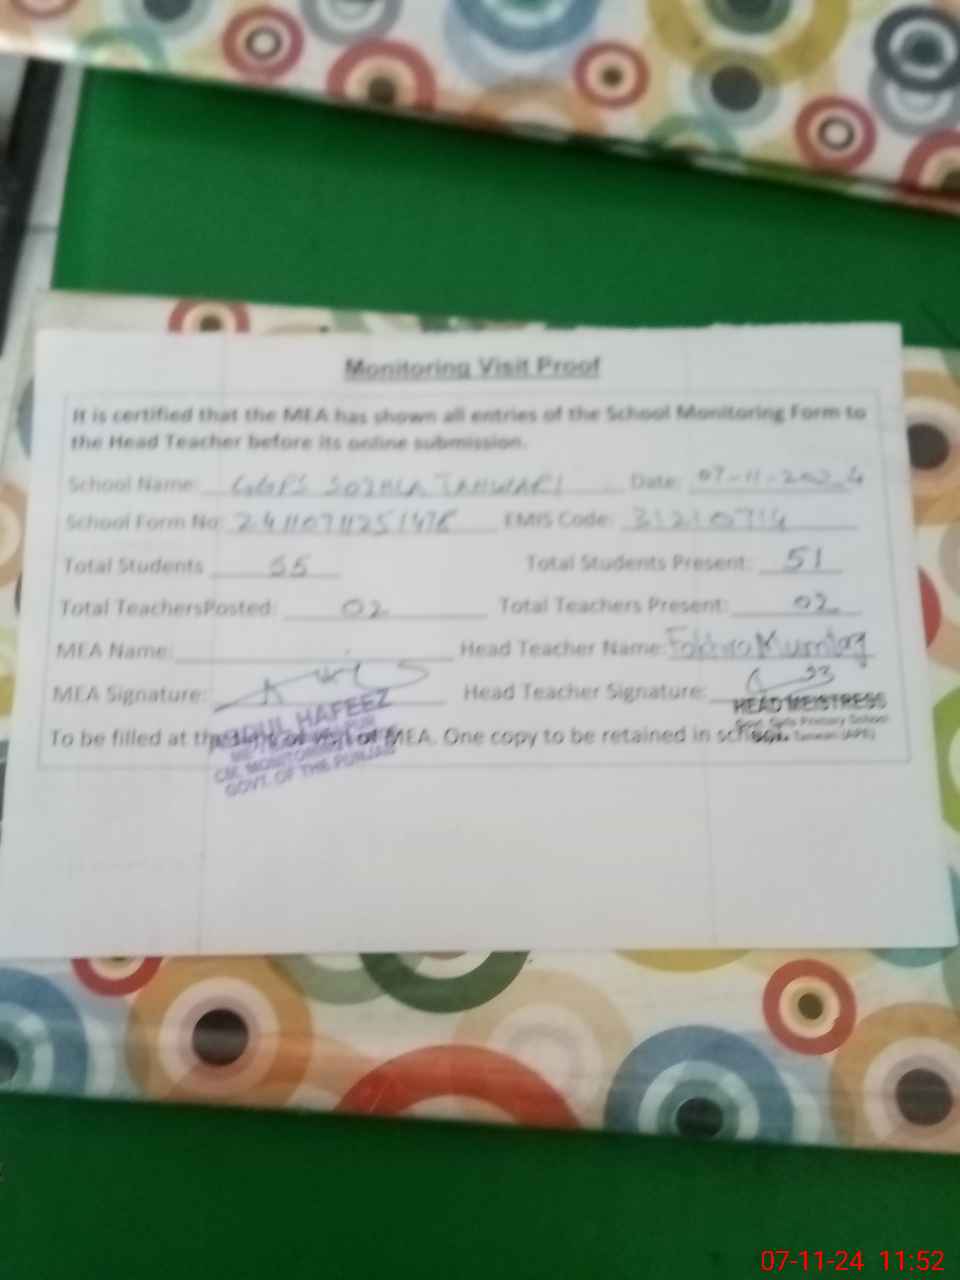 Monitoring Visit Proof
It is certified that the MEA has shown all entries of the School Monitoring Form to
the Head Teacher before its online submission.
School Name: GGPS SOJHLA TANWARI Date: 07-11-2024
School Form No: EMIS Code: 31210714
Total Students 55 Total Students Present: 51
Total TeachersPosted: 02 Total Teachers Present: 02
MEA Name: Head Teacher Name: Mumtaz
MEA Signature: Head Teacher Signature:
HAFEEZ
HEAD MEISTRESS
Govt. Girls Primary School
To be filled at the time of visit of MEA. One copy to be retained in school.
CM. MONITORING
GOVT. OF THE PUNJAB
07-11-24 11:52